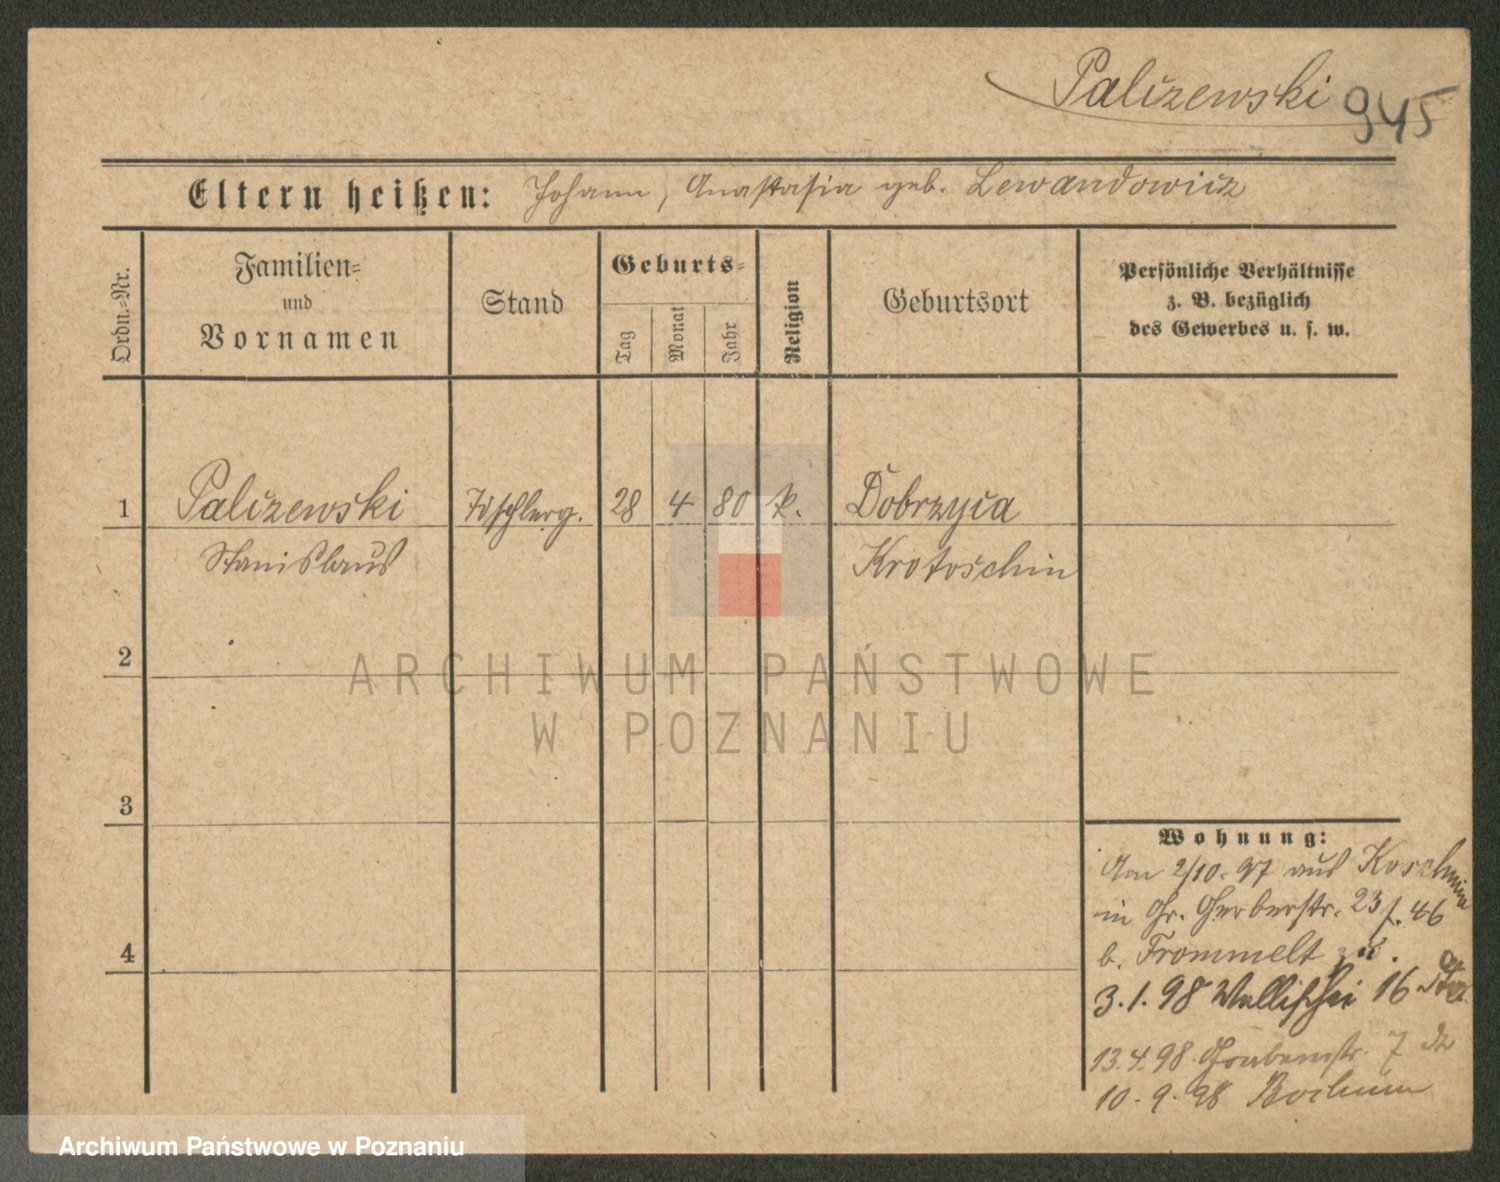 Palizewski 945
Eltern heißen: Johann, Anastasia geb. Lewandowicz
Ordn.=Nr.
Familien=
und
Vornamen
Stand
Geburts=
Tag
Monat
Jahr
Religion
Geburtsort
Persönliche Verhältnisse
z. B. bezüglich
des Gewerbes u. s. w.
1 Palizewski Tischlerg. 28 4 80 k. Dobrzyca
Stanislaus Krotoschin
2
3
4
Wohnung:
Am 2/10. 97 aus Koschmin
in Gr. Gerberstr. 23 f. 46
b. Frommelt
3.1.98 Wallischei 16
13.4.98. Grabenstr. 7
10.9.98 Bochum
ARCHIWUM PAŃSTWOWE
W POZNANIU
Archiwum Państwowe w Poznaniu